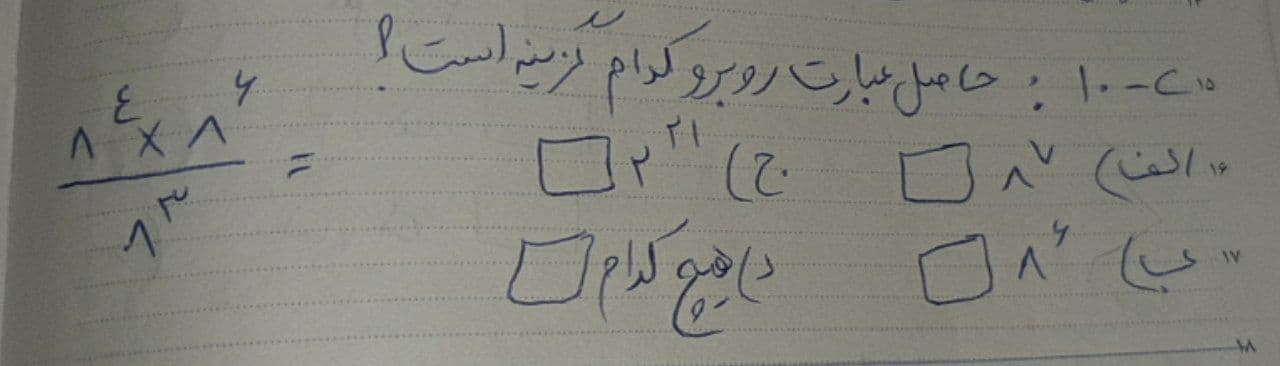 ۱۵ ۱۰-۲ : حاصل عبارت روبرو کدام گزینه است؟
۸^۴ × ۸^۶ / ۸^۳ =
۱۶ الف) ۸^۷ □ ج) ۲^۲۱ □
۱۷ ب) ۸^۶ □ د) هیچ کدام □
۱۸